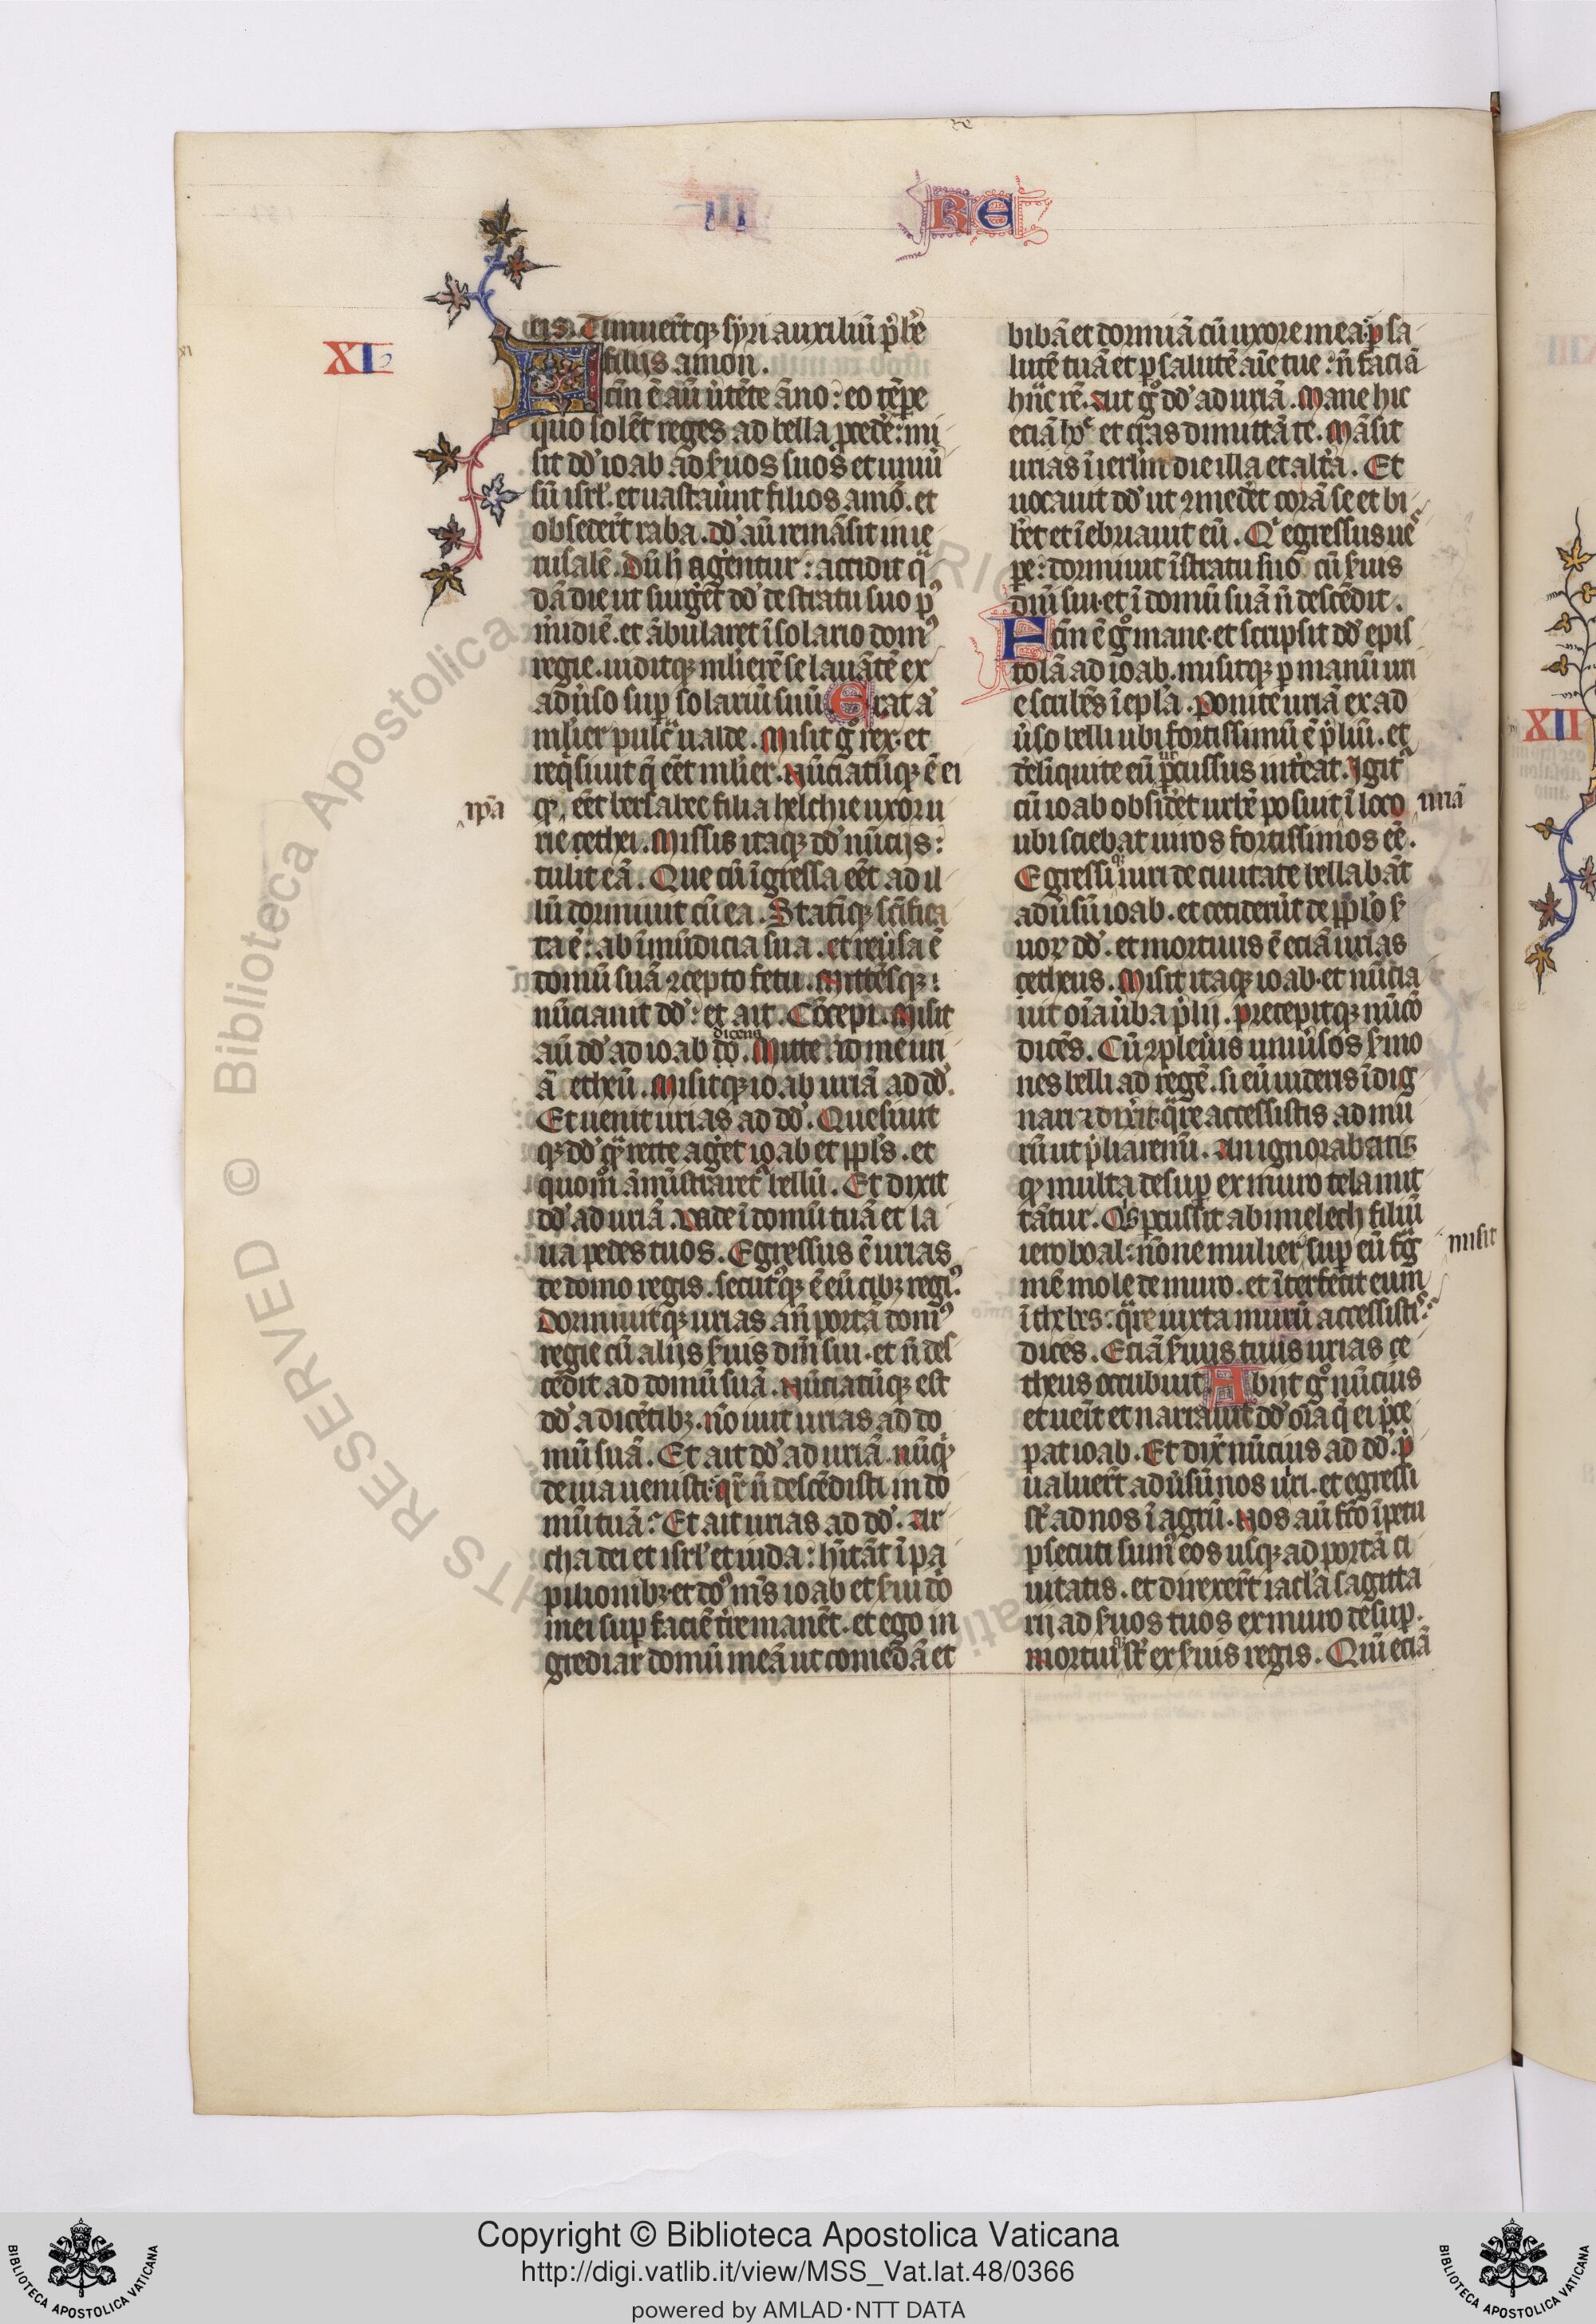 RE
XI
eis. Timuer̄tqꝫ syri auxiliū p̄be᷑
filijs amon.
Fctm̄ ē aū u᷑te᷑te āno : eo tēpe
quo solēt reges ad bella ꝓcede᷑ : mi
sit dd̕ ioab ad s̕uos suos et uniu᷑
sū isrl̕. et uastau᷑unt filios amō. et
obseder̄t raba. dd̕ aū remāsit in ie
rusalē. Dū h̄ agerentur : accidit q̈
dā die ut surge᷑t dd̕ de stratu suo pꝰ
m̕idiē. et ābularet ī solario domꝰ
regie. uiditqꝫ mlierē se lauātē ex
adu᷑so suꝑ solariū suū. Erat aͬ
mlier pulcͣ ualde. Misit gͦ rex. et
reqͥsiuit q̄ eēt mlier. Nūciatūqꝫ ē ei
ipā
qꝫ eēt bersabee filia helchie uxor u
rie ethei. Missis itaqꝫ dd̕ nūcijs :
tulit eā. Que cū īgressa eēt ad il
lū dormiuit cū ea. Statīqꝫ scīfica
ta ē : ab īmūdicia sua. et reu᷑sa ē
domū suā ꝯcepto fetu. Mittēsqꝫ :
nūciauit dd̕ : et ait. Cōcepi. Misit
dicens
aū dd̕ ad ioab dō. Mitte ad me uri
ā etheū. Misitqꝫ ioab uriā ad dd̕.
Et uenit urias ad dd̕. Quesiuit
qꝫ dd̕ qͣ᷑ recte age᷑t ioab et ppl̕s. et
quom̊ āmīstraret᷑ bellū. Et dixit
dd̕ ad uriā. Vade ī domū tuā et la
ua pedes tuos. Egressus ē urias
de domo regis. secutꝰqꝫ ē eū cibꝫ regiꝰ.
Dormiuitqꝫ urias añ portā domꝰ
regie cū alijs s̕uis dn̄i sui. et n̄ des
cēdit ad domū suā. Nūciatūqꝫ est
dd̕ a dicētibꝫ. nō iuit urias ad do
mū suā. Et ait dd̕ ad uriā. nūqͥd
de uia uenisti : qr̄ n̄ descēdisti in do
mū tuā : Et ait urias ad dd̕. Ar
cha dei et isrl̕ et iuda : hītāt ī pa
pilionibꝫ. et doꝰ m̄s ioab et s̕ui do
mei suꝑ faciē tr̄e manēt. et ego in
grediar domū meā ut comedā et
bibā et dormiā cū uxore mea. ꝑ sa
lutē tuā et ꝑ salutē aīe tue : n̄ faciā
hāc rē. Ait gͦ dd̕ ad uriā. Mane hic
eciā hoͨ et cras dimittā te. Māsit
urias ī ierl̕m die illa et alt᷑a. Et
uocauit dd̕ ut ꝯmede᷑t corā se et bi
be᷑t et īebriauit eū. Qͥ egressus ues
ꝑe : dormiuit ī stratu suo cū s̕uis
dn̄i sui. et ī domū suā n̄ descēdit.
Fctm̄ ē gͦ mane. et scripsit dd̕ epis
tolā ad ioab. misitqꝫ ꝑ manū uri
e scribēs ī epl̕a. Ponite uriā ex ad
u᷑so belli ubi fortissimū ē p̄liū. et
ut
derīquite eū ꝑcussus int᷑eat. Igit᷑
cū ioab obside᷑t urbē posuit ī loco
uriā
ubi sciebat uiros fortissimos eē.
Egressiqꝫ uiri de ciuitate bellabāt
adu᷑sū ioab. et ceciderūt de ppl̕o s̕
uoꝝ dd̕. et mortuus ē eciā urias
etheus. Misit itaqꝫ ioab. et nūcia
uit oīa u᷑ba p̄lij. precepitqꝫ nūcō
dicēs. Cū ꝯpleu᷑is uniu᷑sos s̕mo
nes belli ad regē. si eū uideris īdig
nari ⁊ dix᷑it. qͣre accessistis ad mu
rū ut p̄liaremī. An ignorabatis
qꝫ multa desuꝑ ex muro tela mit
tātur. Qͥs ꝑcussit abimelech filiū
ieroboal : nōne mulier suꝑ eū fͣg
misit
mē mole de muro. et īterfecit eum
ī thebes : qͣre iuxta murū accessistis.
dices. Eciā s̕uus tuus urias e
theus occubuit. Abijt gͦ nūcius
et uēit et narrauit dd̕ oīa q̄ ei p̄ce
ꝑat ioab. Et dix̄ nūcius ad dd̕. p̄
ualuer̄t adu᷑sū nos uiri. et egressi
st̄ ad nos ī agrū. Nos aū fcō īpetu
ꝑsecuti sumꝰ eos usqꝫ ad portā ci
uitatis. et direxer̄t iacl̕a sagitta
rij ad s̕uos tuos ex muro desuꝑ.
Mortuiqꝫ st̄ ex s̕uis regis. Qui eciā
XII
Copyright © Biblioteca Apostolica Vaticana
http://digi.vatlib.it/view/MSS_Vat.lat.48/0366
powered by AMLAD·NTT DATA
BIBLIOTECA APOSTOLICA VATICANA
BIBLIOTECA APOSTOLICA VATICANA